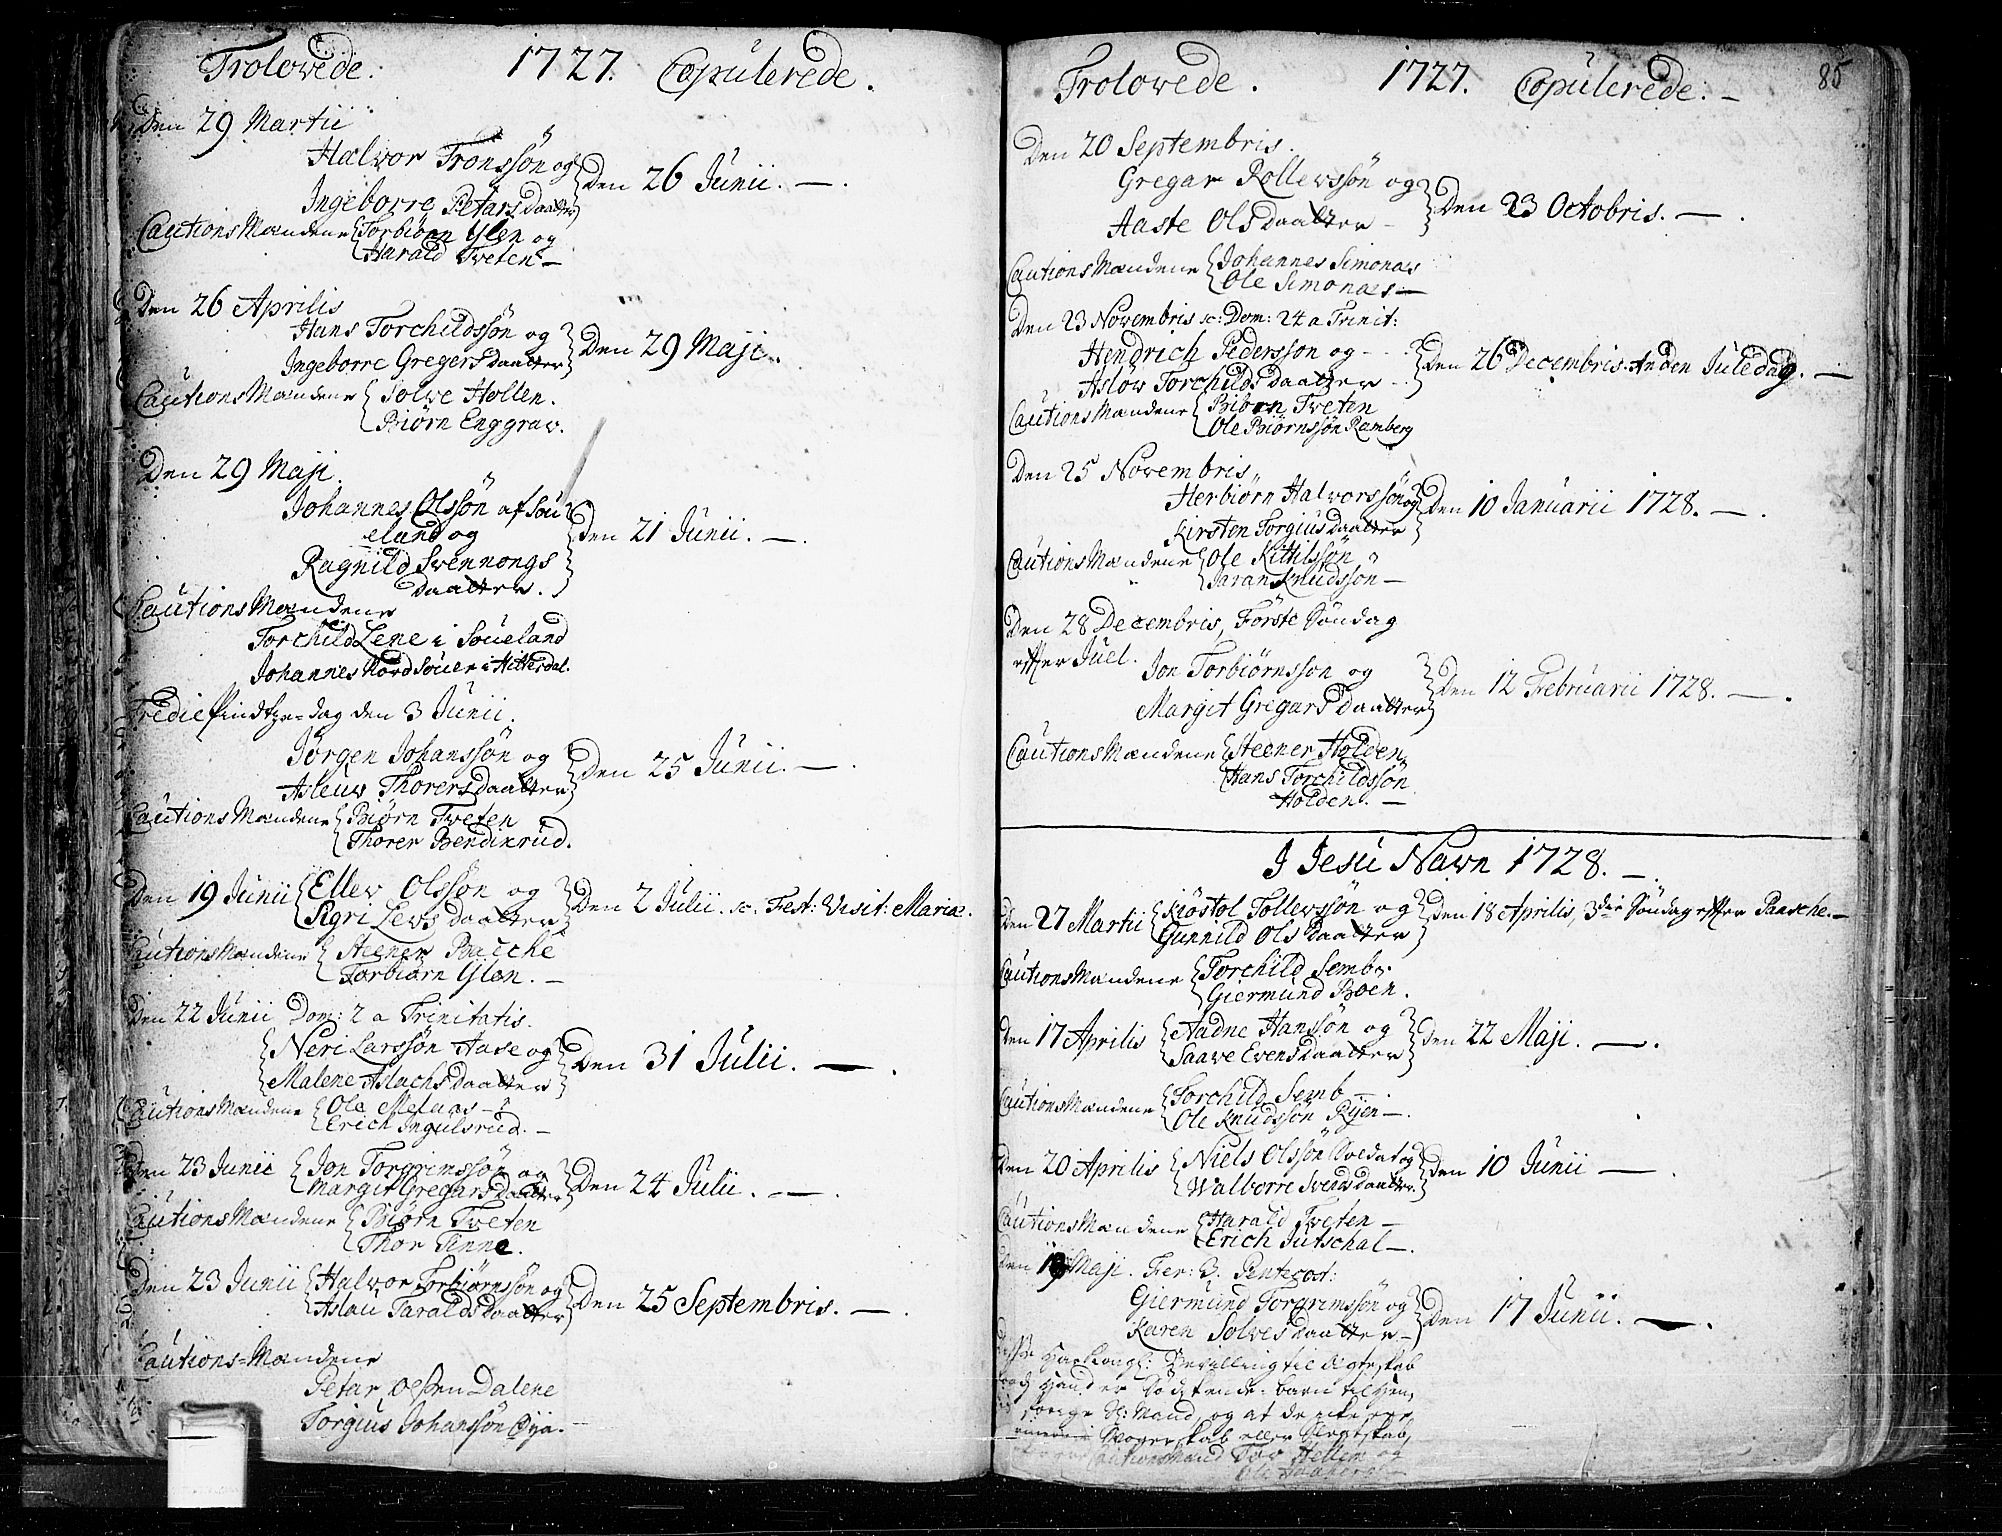 Trolovede. 1727. Copulerede.
Den 29 Martii
Halvor Tronssøn og
Ingeborre Petarsdaatter
Den 26 Junii. —.
CautionsMændene Torbiørn Ylen og
Harald Tveten —
Den 26 Aprilis
Hans Torchildssøn og
Ingeborre Gregersdaatter
Den 29 Maji.
CautionsMændene Solve Hollen.
Biørn Enggrav.
Den 29 Maji.
Johannes Olssøn af Sou
eland og
Ragnild Svennongs
daatter.
Den 21 Junii. —.
CautionsMændene
Torchild Lene i Soueland
Johannes Nordsouen i Hitterdal.
Tredie Pindtze-dag den 3 Junii.
Jørgen Johanssøn og
Asleuw Thorersdaatter
Den 25 Junii. —.
CautionsMændene Biørn Tveten
Thorer Bendixrud.
Den 19 Junii Ellev Olssøn og
Sigri Levsdaatter
Den 2 Julii. sc. Fest: Visit: Mariæ.
CautionsMændene Steener Bacche
Torbiørn Ylen. —
Den 22 Junii Dom: 2 a Trinitatis.
Neri Larssøn Aase og
Malene Aslachsdaatter
Den 31 Julii. —.
CautionsMændene Ole Melaas —
Erich Ingulsrud. —
Den 23 Junii Jon Torgrimssøn og
Margit Gregarsdaatter
Den 24 Julii. —.
CautionsMændene Biørn Tveten
Thor Tinne.
Den 23 Junii Halvor Torbiørnssøn og
Aslau Taraldsdaatter
Den 25 Septembris. —.
Cautions-Mændene
Petar Olssen Dalene
Torgius Johanssøn Øya.
Trolovede. 1727. Copulerede. — 85
Den 20 Septembris.
Gregar Rollevssøn og
Aaste Olsdaatter —
Den 23 Octobris. —.
CautionsMændene Johannes Simonæs
Ole Simonæs —
Den 23 Novembris sc: Dom: 24 a Trinit:
Hendrich Pederssøn og —
Asløw Torchildsdaatter —
Den 26 Decembris. Anden Juledag. —
CautionsMændene Biørn Tveten
Ole Biørnssøn Ramberg
Den 25 Novembris
Herbiørn Halvorssøn og
Kirsten Torgiusdaatter
Den 10 Januarii 1728. —.
CautionsMændene Ole Kittilssøn
Jaran Knudssøn —
Den 28 Decembris, Første Søndag
efter Juel. Jon Torbiørnssøn og
Margit Gregarsdaatter
Den 12 Februarii 1728. —.
CautionsMændene Steener Holden
Hans Torchildssøn
Holden. —
I Jesu Navn 1728. —.
Den 27 Martii Kiøstol Tollevssøn og
Gunnild Olsdaatter
Den 18 Aprilis, 3die Søndag efter Paasche. —
CautionsMændene Torchild Semb.
Giermund Boen.
Den 17 Aprilis Aadne Hanssøn og
Saave Evensdaatter
Den 22 Maji. —.
CautionsMændene Torchild Semb —
Ole Knudssøn Ryen —.
Den 20 Aprilis Niels Olssøn Soldat og
Walborre Svensdaatter
Den 10 Junii —.
CautionsMændene Harald Tveten —
Erich Jutschal —.
Den Maji. Fer: 3. Pentecost:
Giermund Torgrimssøn og
Karen Solvesdaatter —
Den 17 Junii. —.
Har Kongl: Bevilling til Ægteskab
Hand er Sødskende-barn til
forige Mand, og at de icke ere
Svogerskab eller Slegtskab,
CautionsMænd Tov Hellem og
Ole